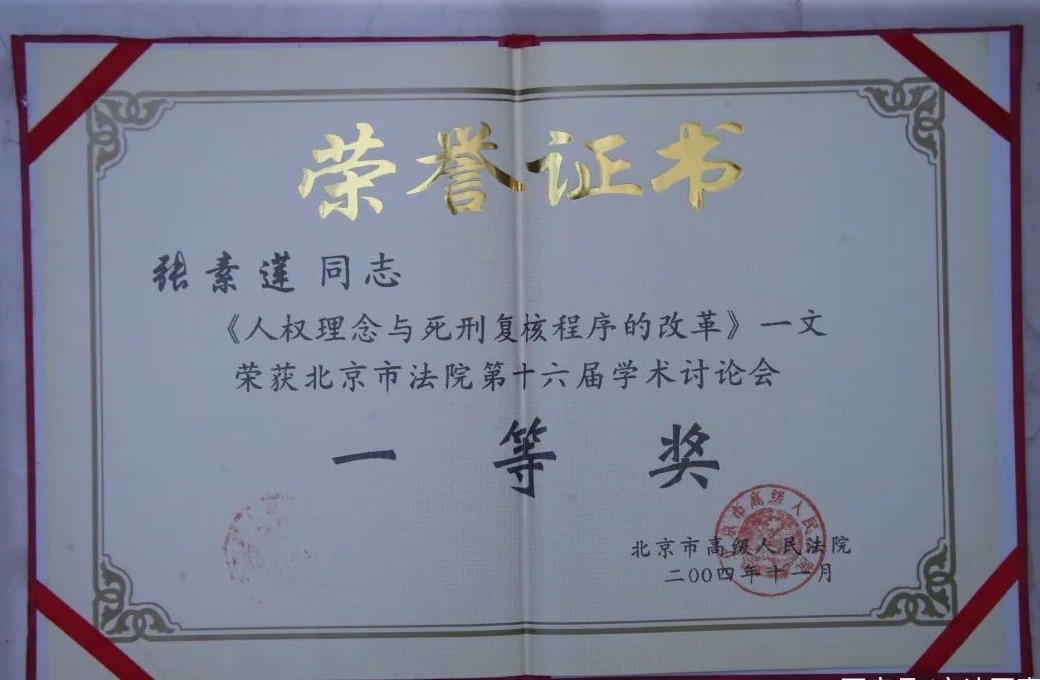 荣誉证书
张素莲同志
《人权理念与死刑复核程序的改革》一文
荣获北京市法院第十六届学术讨论会
一等奖
北京市高级人民法院
二00四年十一月